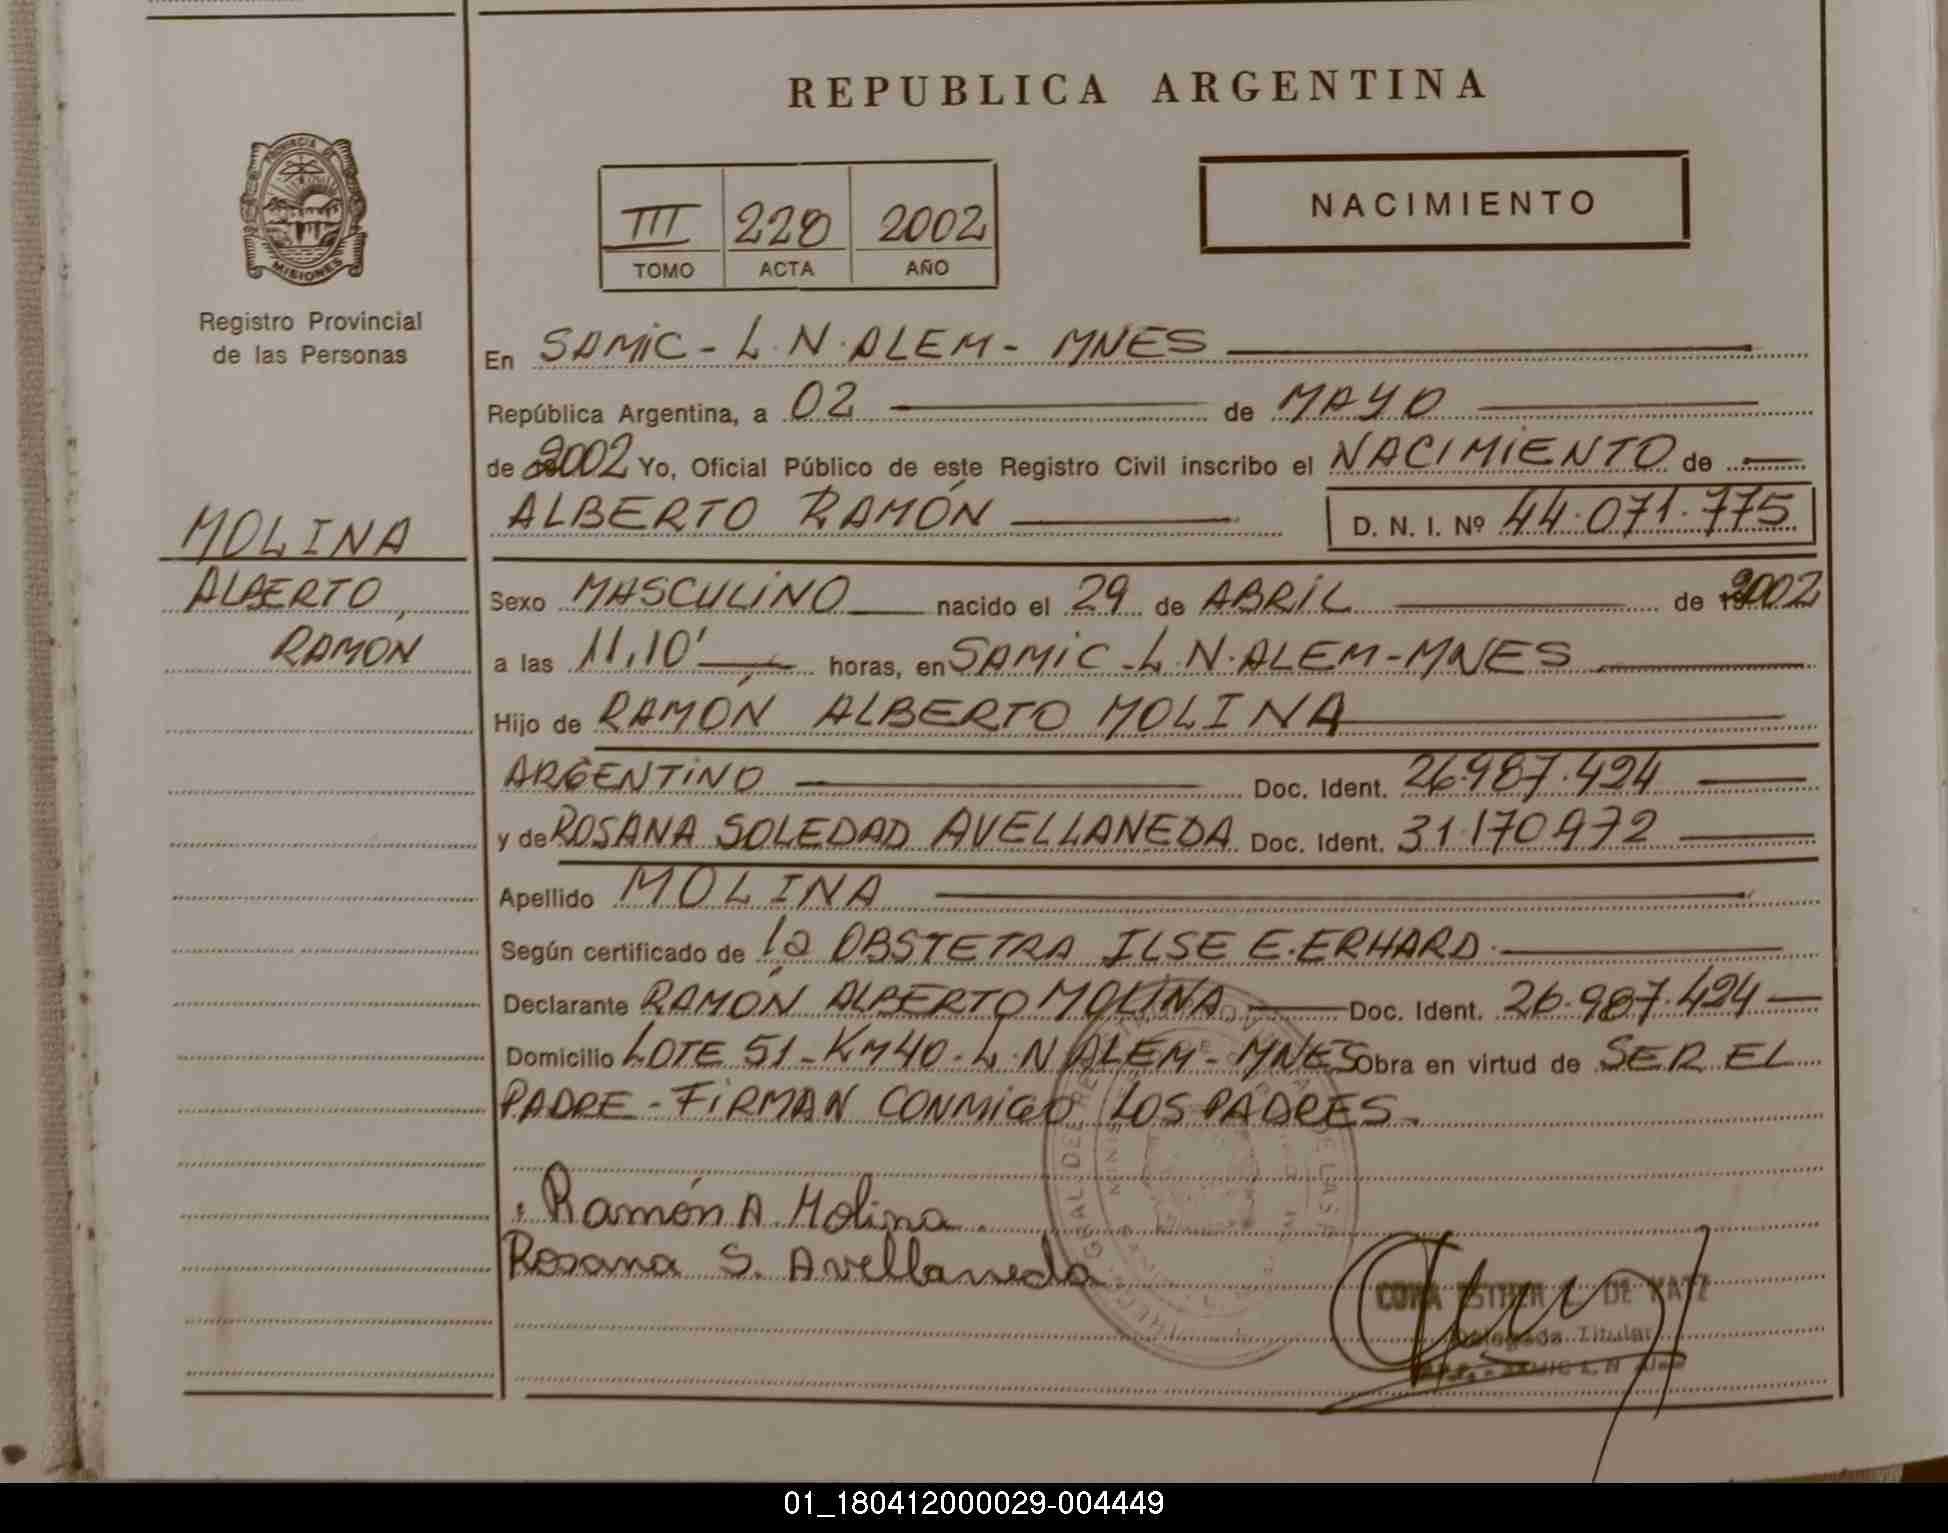 REPUBLICA ARGENTINA
PROVINCIA DE
MISIONES
Registro Provincial
de las Personas
NACIMIENTO
III 228 2002
TOMO ACTA AÑO
En SAMIC - L.N. ALEM - MNES
República Argentina, a 02 de MAYO
de 2002 Yo, Oficial Público de este Registro Civil inscribo el NACIMIENTO de
ALBERTO RAMÓN D. N. I. Nº 44.071.775
MOLINA
ALBERTO,
RAMON
Sexo MASCULINO nacido el 29 de ABRIL de 2002
a las 11,10' horas, en SAMIC - L.N. ALEM - MNES
Hijo de RAMÓN ALBERTO MOLINA
ARGENTINO Doc. Ident. 26.987.424
y de ROSANA SOLEDAD AVELLANEDA Doc. Ident. 31.170.972
Apellido MOLINA
Según certificado de la OBSTETRA ILSE E. ERHARD.
Declarante RAMÓN ALBERTO MOLINA Doc. Ident. 26.987.424
Domicilio LOTE 51 - KM 40 - L.N ALEM - MNES Obra en virtud de SER EL
PADRE - FIRMAN CONMIGO LOS PADRES.
Ramón A. Molina
Rosana S. Avellaneda
ESTHER DE KATZ
Delegada Titular
01_180412000029-004449